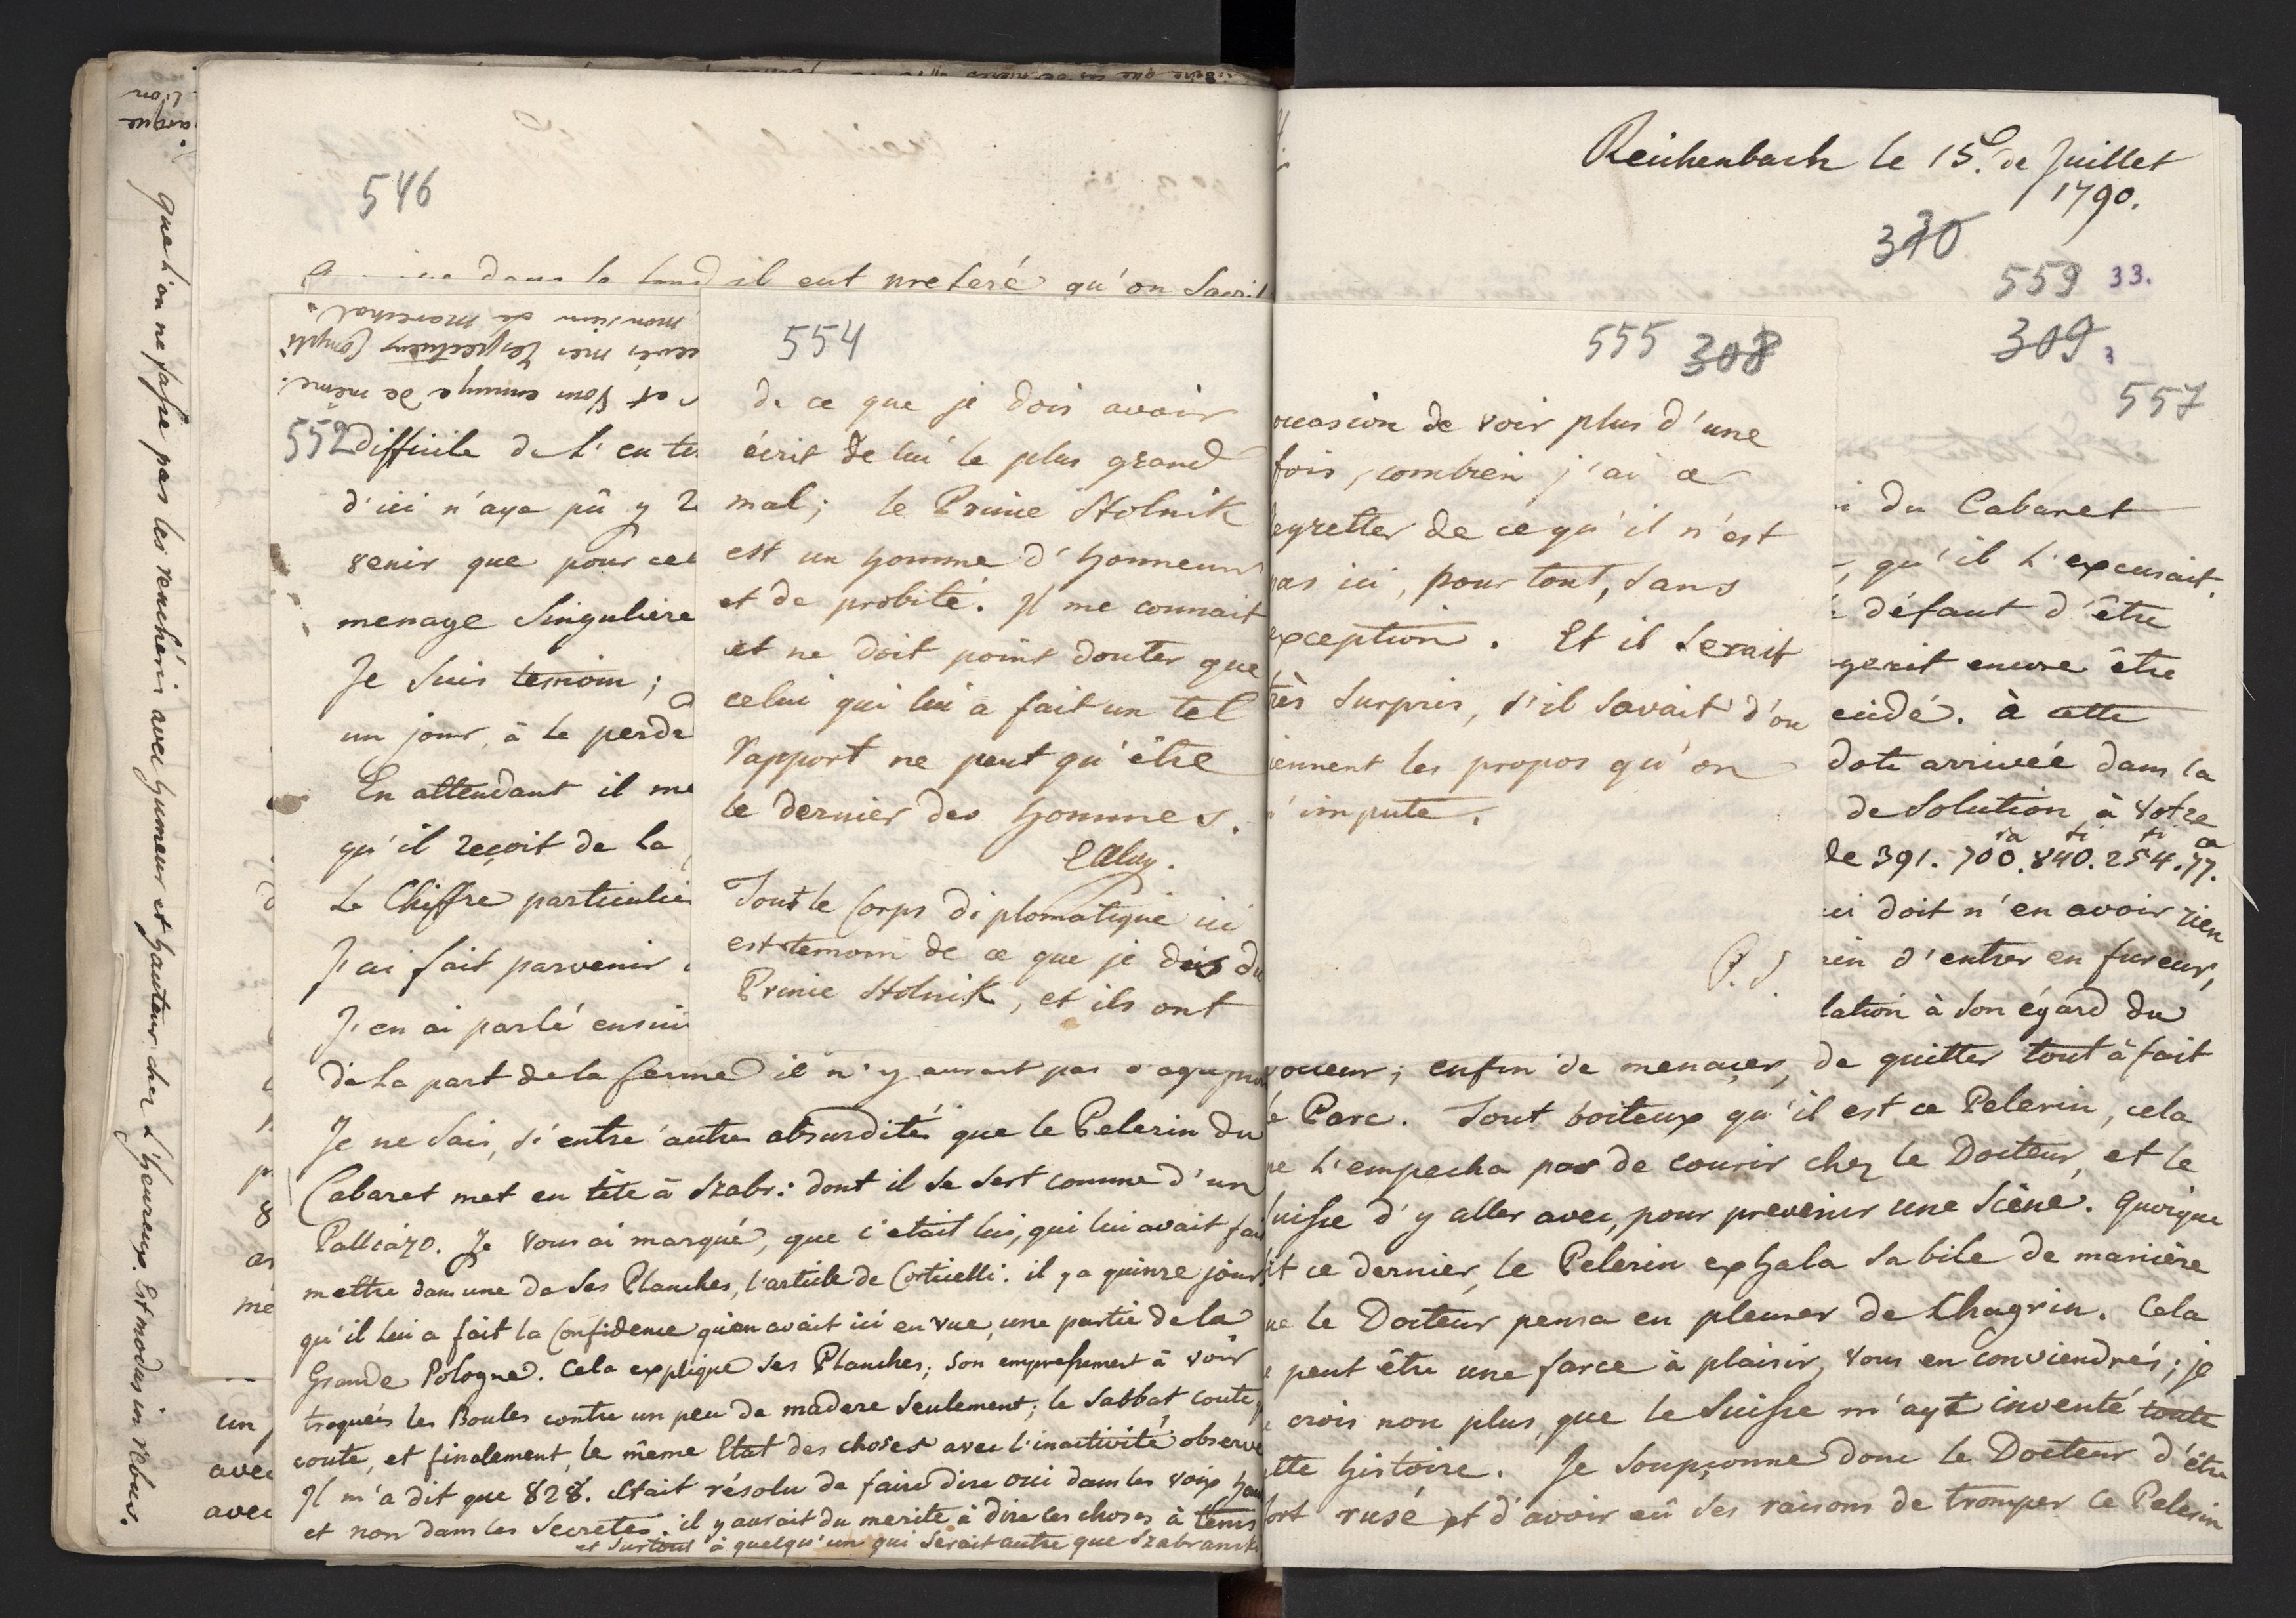 que l'on ne fasse pas les renchéris avec humeur et hauteur chez l'heureux. Est modus in rebus.
546
dans le fond il eut preferé qu'on
monsieur le Marechal
mes respectueux
et vous ennuye de même.
552 difficile de l'en
d'ici n'aye pû y
venir que pour cet
menage singuliere
Je suis temoin;
un jour, à le perde
En attendant il me
qu'il reçoit de la
Le Chiffre particulie
J'ai fait parvenir
J'en ai parlé ensui
de la part de la ferme il n'y aurait pas
Je ne sais, si entre autre absurdité que le Pelerin du
Cabaret met en tête à Szabr: dont il se sert comme d'un
Palliazo. Je vous ai marqué, que c'etait lui, qui lui avait fai
mettre dans une de ses Planches, l'article de Corticelli. il y a quinze jours
qu'il lui a fait la Confidence qu'on avait ici en vue, une partie de la
Grande Pologne. Cela explique ses Planches; son empressement à voir
troquées les Boules contre un peu de madere seulement; le Sabbat coute
coute, et finalement, le même Etat des choses avec l'inactivité observe
Il m'a dit que 828. etait résolu de faire dire oui dans les voix
et non dans les Secretes. il y aurait du merite à dire les choses à tems
et surtout à quelqu'un qui serait autre que Szabransk
un
avec
avec
554
de ce que je dois avoir
écrit de lui le plus grand
mal; le Prince Stolnik
est un homme d'honneur
et de probité. Il me connait
et ne doit point douter que
celui qui lui a fait un tel
rapport ne peut qu'être
le dernier des hommes.
Tout le Corps diplomatique ici
est temoin de ce que je dois du
Prince Stolnik, et ils ont
555 308
occasion de voir plus d'une
fois, combien j'ai a
regretter de ce qu'il n'est
pas ici, pour tout, sans
exception. Et il serait
très surpris, s'il savait d'ou
viennent les propos qu'on
m'impute.
P.S.
Reichenbach le 15. de Juillet
1790.
330
559 33.
309. 3
557
du Cabaret
qu'il l'excusait,
défaut d'être
encore être
cidé. à cette
dote arrivée dans la
de Solution à votre
de 391. 700. 840. 254. 77.
ci doit n'en avoir rien
d'entrer en fureur,
lation à son égard du
oueur; enfin de menacer, de quitter tout à fait
le Parc. Tout boiteux qu'il est ce Pelerin, cela
ne l'empecha pas de courir chez le Docteur, et le
Suisse d'y aller avec, pour prevenir une Scène. Quoique
ce dernier, le Pelerin exhala sa bile de manière
que le Docteur pensa en pleurer de Chagrin. Cela
peut être une farce à plaisir, vous en conviendrés; je
crois non plus, que le Suisse m'ayt inventé toute
cette histoire. Je soupçonne donc le Docteur d'être
fort rusé et d'avoir eû ses raisons de tromper le Pelerin